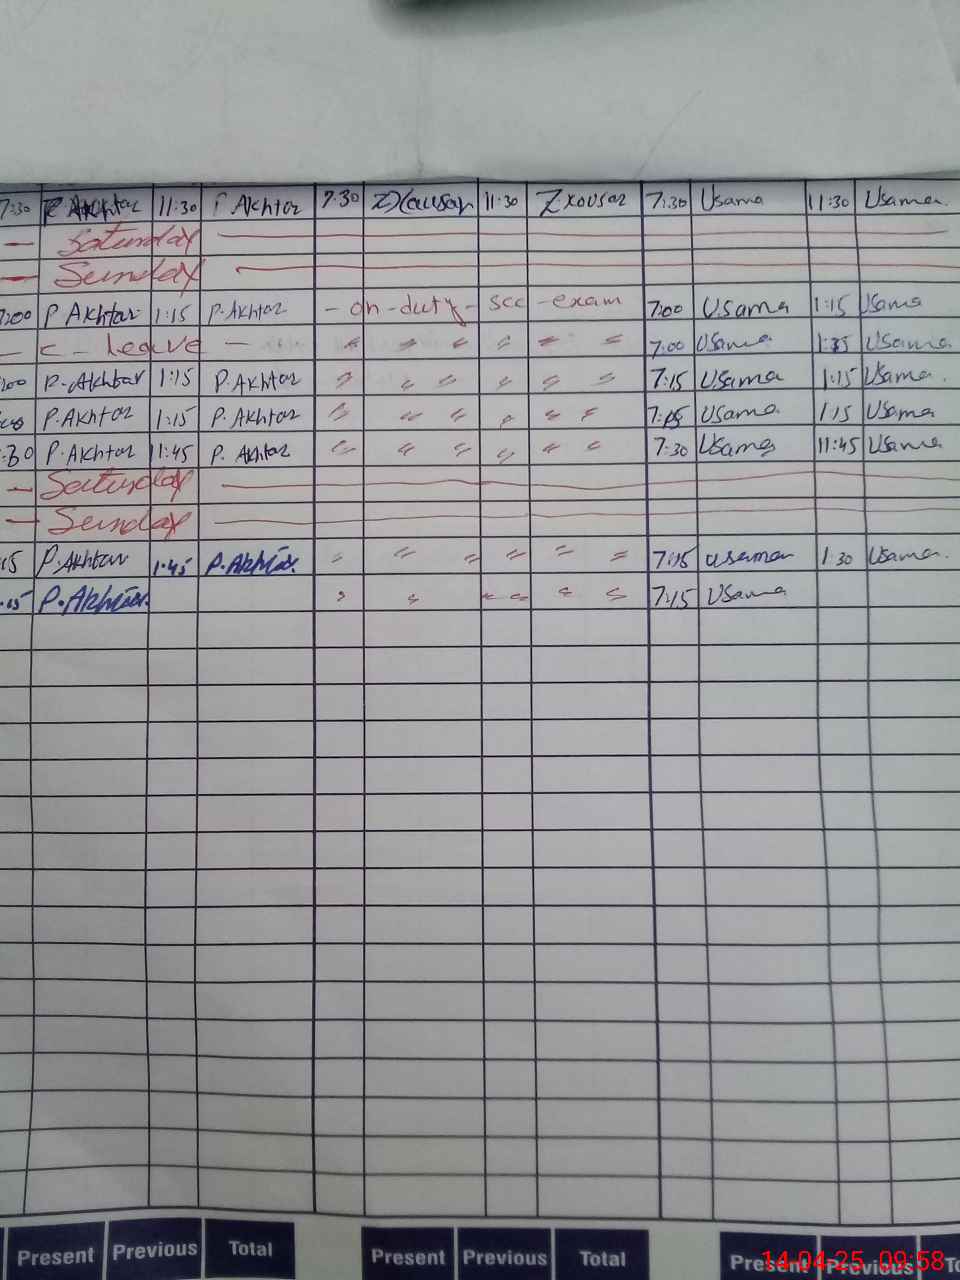 7:30 P Akhtar 11:30 P Akhtar 7:30 ZKausar 11:30 Zkousar 7:30 Usama 11:30 Usama.
— Saturday —
— Sunday —
7:00 P Akhtar 1:15 P.Akhtar - on-duty - scc -exam 7:00 Usama 1:15 Usama
— c - Leave — " " " " " " 7:00 Usama Usama
:00 P.Akhtar 1:15 P.Akhtar " " " " " " 7:15 Usama 1:15 Usama.
P.Akhtar 1:15 P.Akhtar " " " " " " Usama 1:15 Usama
:30 P.Akhtar 11:45 P. Akhtar " " " " " " 7:30 Usama 11:45 Usama
— Saturday —
— Sunday —
:15 P.Akhtar 1:45 P.Akhtar. " " " " " " 7:15 Usama 1:30 Usama.
:15 P.Akhtar. " " " " " " 7:15 Usama
Present Previous Total Present Previous Total Present Previous To
14.04.25 09:58